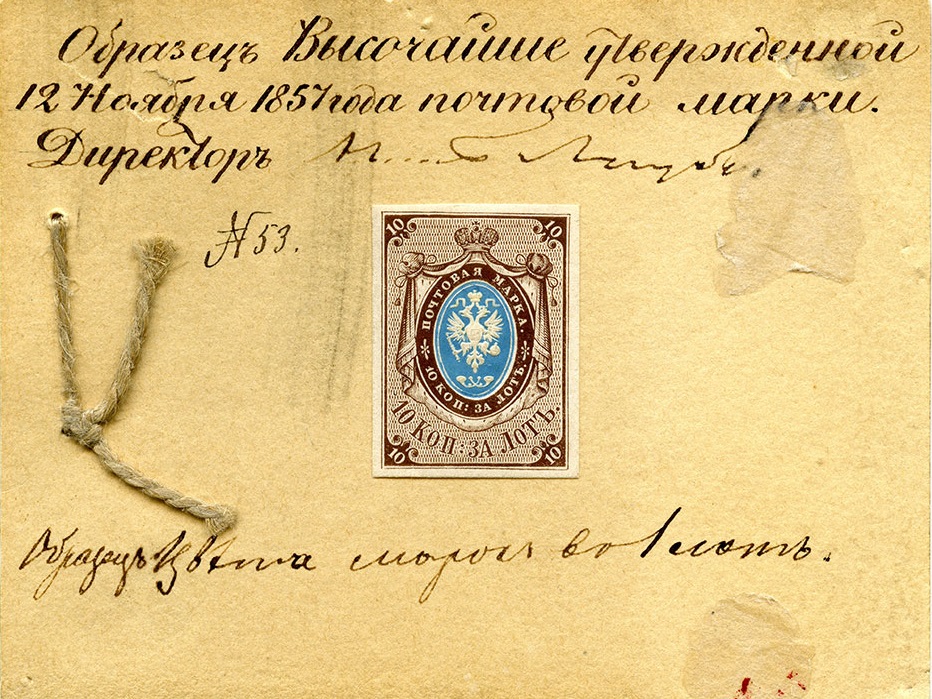 Образецъ Высочайше утвержденной
12 Ноября 1857 года почтовой марки.
Директоръ
№ 53.
10 10
ПОЧТОВАЯ МАРКА.
10 КОП: ЗА ЛОТЪ.
10 КОП: ЗА ЛОТЪ.
10 10
Образецъ Цвѣта марокъ во 1 лотъ.